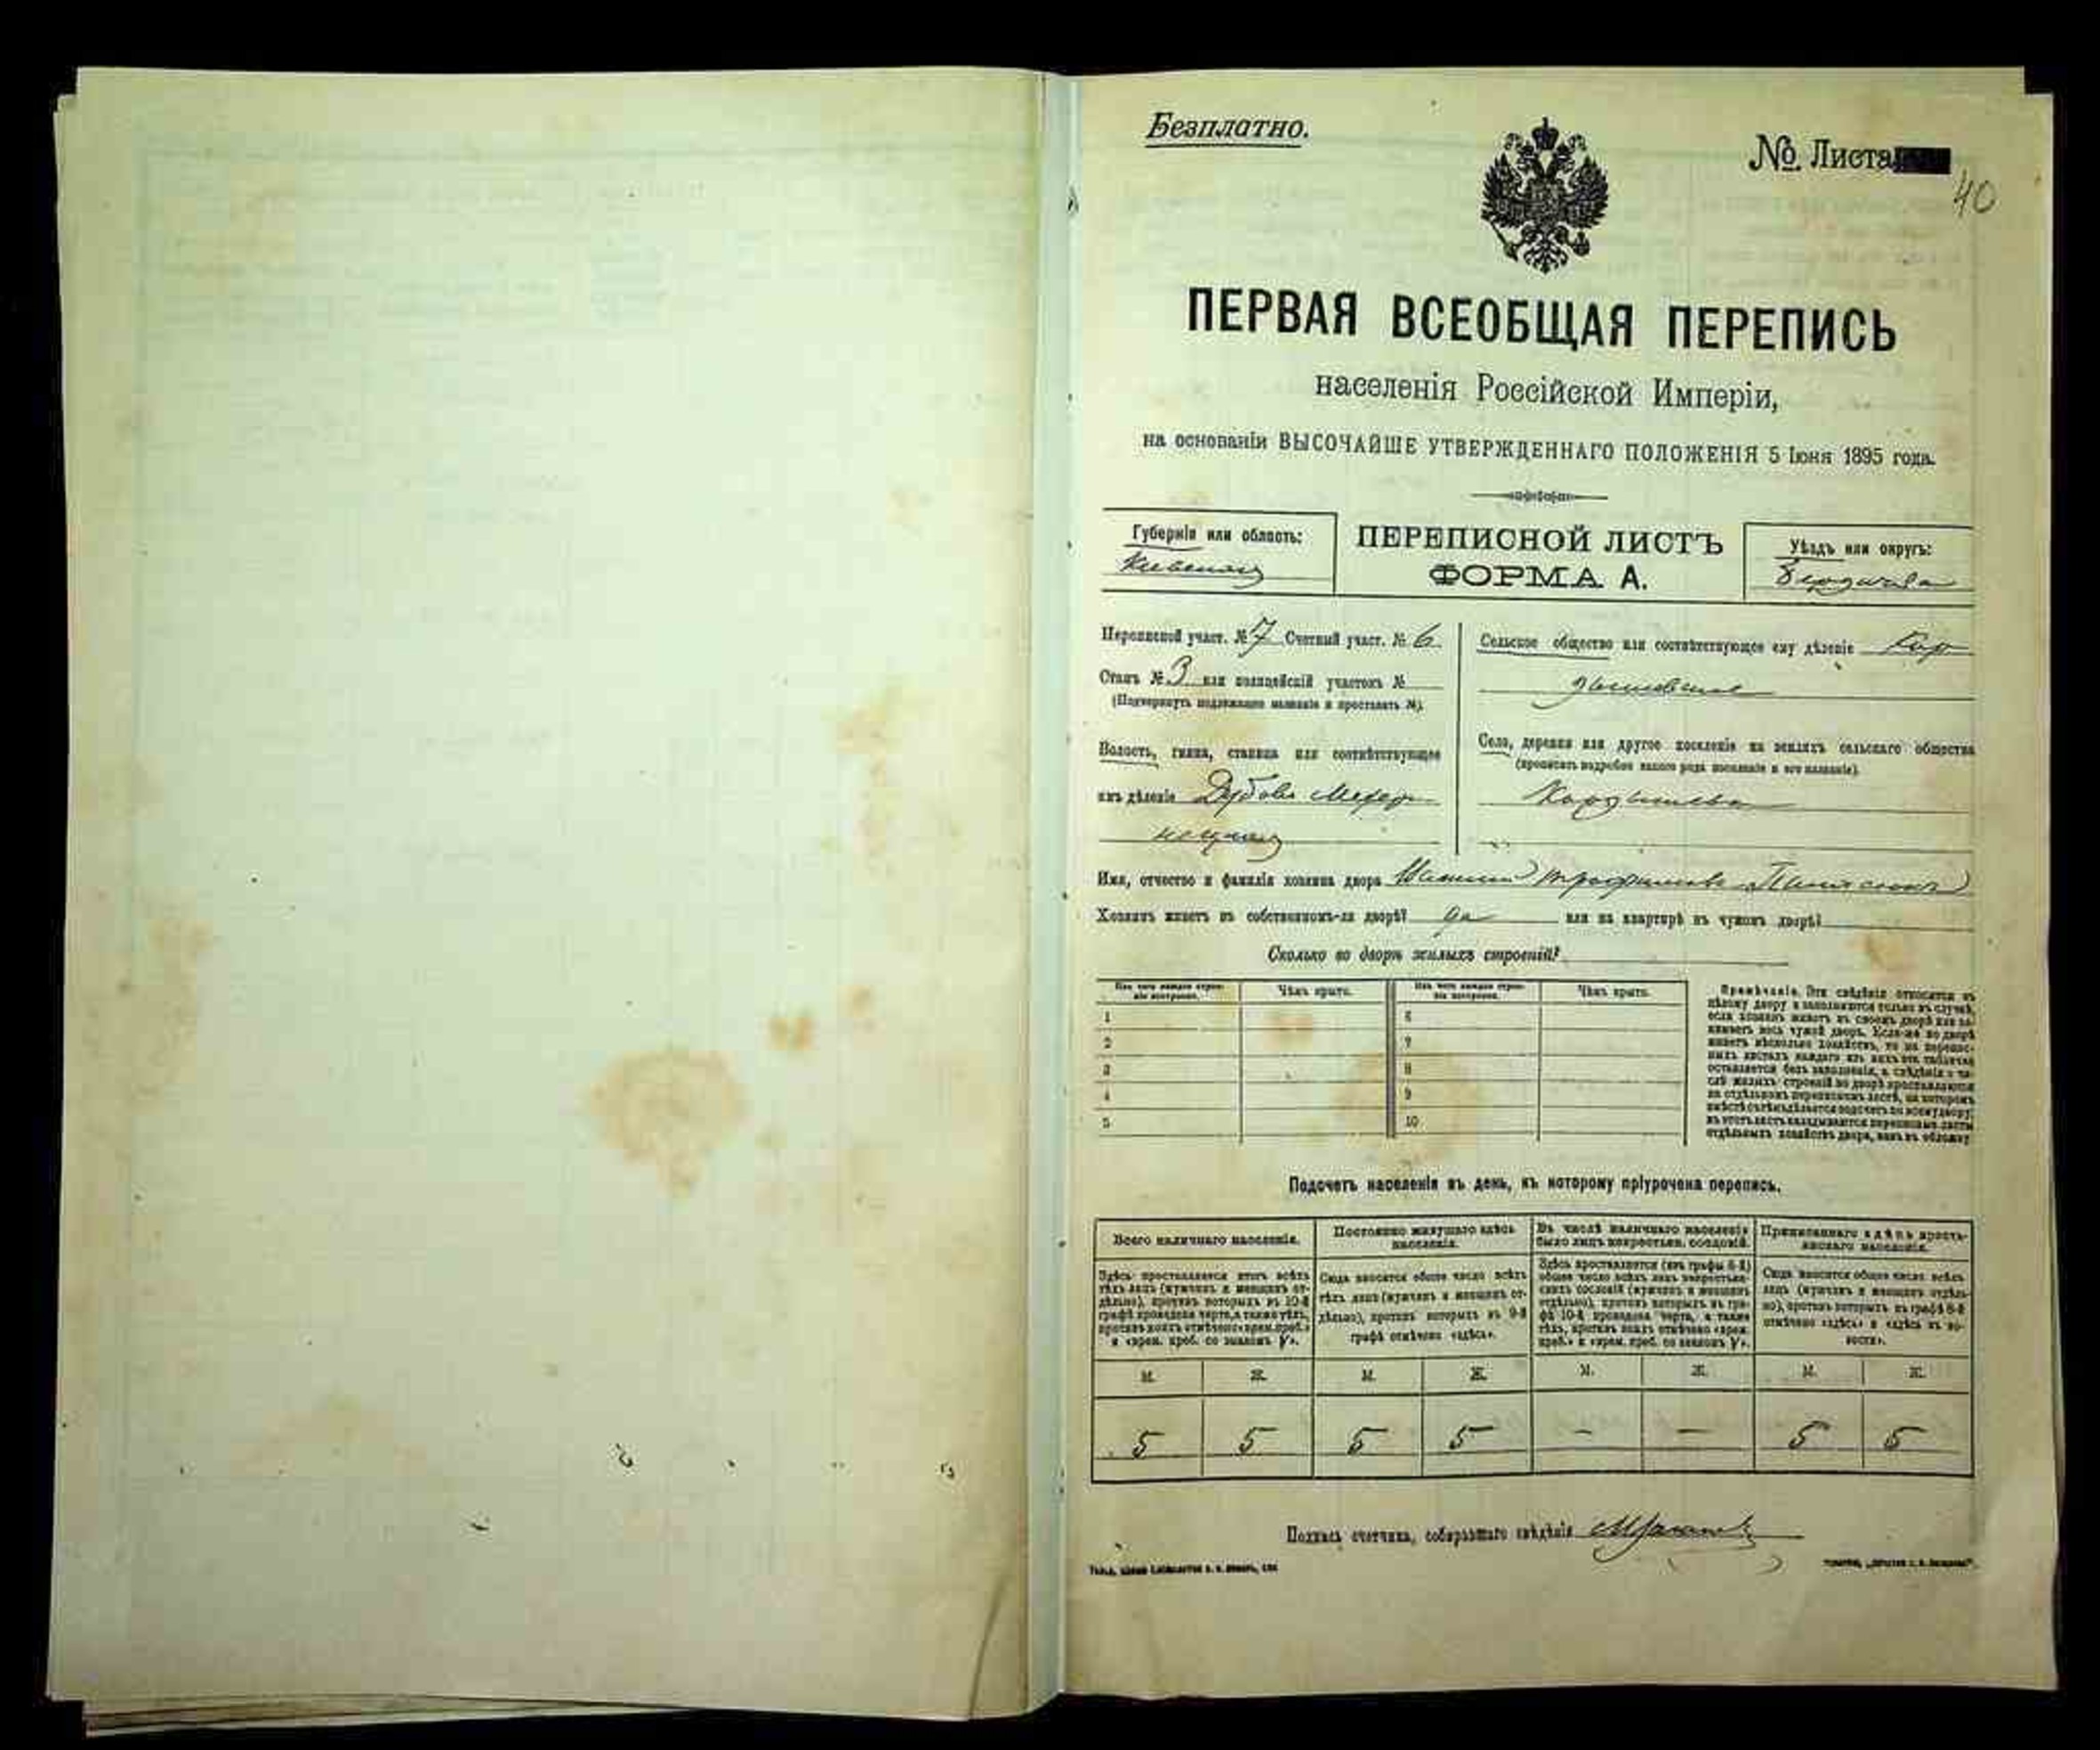 Безплатно.
№ Листа
40
ПЕРВАЯ ВСЕОБЩАЯ ПЕРЕПИСЬ
населенія Россійской Имперіи,
на основаніи ВЫСОЧАЙШЕ УТВЕРЖДЕННАГО ПОЛОЖЕНІЯ 5 Іюня 1895 года.
Губернія или область:
Киевская
ПЕРЕПИСНОЙ ЛИСТЪ
ФОРМА А.
Уѣздъ или округъ:
Переписной участ. № 7 Счетный участ. № 6
Станъ № 3 или полицейскій участокъ №
(Подчеркнуть подлежащее названіе и проставить №).
Волость, гмина, станица или соотвѣтствующее
имъ дѣленіе Дубово
Сельское общество или соотвѣтствующее ему дѣленіе Кор
дышевское
Село, деревня или другое поселеніе на земляхъ сельскаго общества
(прописать подробно какого рода поселеніе и его названіе).
Кордышевка
Имя, отчество и фамилія хозяина двора
Хозяинъ живетъ въ собственномъ-ли дворѣ? да или на квартирѣ въ чужомъ дворѣ?
Сколько во дворѣ жилыхъ строеній?
Изъ чего каждое строе-
ніе построено.
Чѣмъ крыто.
Изъ чего каждое строе-
ніе построено.
Чѣмъ крыто.
1
2
3
4
5
6
7
8
9
10
Примѣчаніе. Эти свѣдѣнія относятся къ
цѣлому двору и заполняются только въ случаѣ,
если хозяинъ живетъ въ своемъ дворѣ или за-
нимаетъ весь чужой дворъ. Если-же во дворѣ
живетъ нѣсколько хозяйствъ, то на перепис-
ныхъ листахъ каждаго изъ нихъ эта табличка
оставляется безъ заполненія, а свѣдѣнія о чи-
слѣ жилыхъ строеній во дворѣ проставляются
на отдѣльномъ переписномъ листѣ, на которомъ
вмѣстѣ съ тѣмъ дѣлается подсчетъ по всему двору;
въ этотъ листъ вкладываются переписные листы
отдѣльныхъ хозяйствъ двора, какъ въ обложку
Подсчетъ населенія въ день, къ которому пріурочена перепись.
Всего наличнаго населенія.
Здѣсь проставляется итогъ всѣхъ
тѣхъ лицъ (мужчинъ и женщинъ от-
дѣльно), противъ которыхъ въ 10-й
графѣ проведена черта, а также тѣхъ,
противъ коихъ отмѣчено «врем. преб.»
и «врем. преб. со знакомъ V».
Постоянно живущаго здѣсь
населенія.
Сюда вносится общее число всѣхъ
тѣхъ лицъ (мужчинъ и женщинъ от-
дѣльно), противъ которыхъ въ 9-й
графѣ отмѣчено «здѣсь».
Въ числѣ наличнаго населенія
было лицъ некрестьян. сословій.
Здѣсь проставляется (изъ графы 6-й)
общее число всѣхъ лицъ некрестьян-
скихъ сословій (мужчинъ и женщинъ
отдѣльно), противъ которыхъ въ гра-
фѣ 10-й проведена черта, а также
тѣхъ, противъ коихъ отмѣчено «врем.
преб.» и «врем. преб. со знакомъ V».
Приписаннаго здѣсь кресть-
янскаго населенія.
Сюда вносится общее число всѣхъ
лицъ (мужчинъ и женщинъ отдѣль-
но), противъ которыхъ въ графѣ 8-й
отмѣчено «здѣсь» и «здѣсь въ во-
лости».
М. Ж. М. Ж. М. Ж. М. Ж.
5 5 5 5 — — 5 5
Подпись счетчика, собиравшаго свѣдѣнія